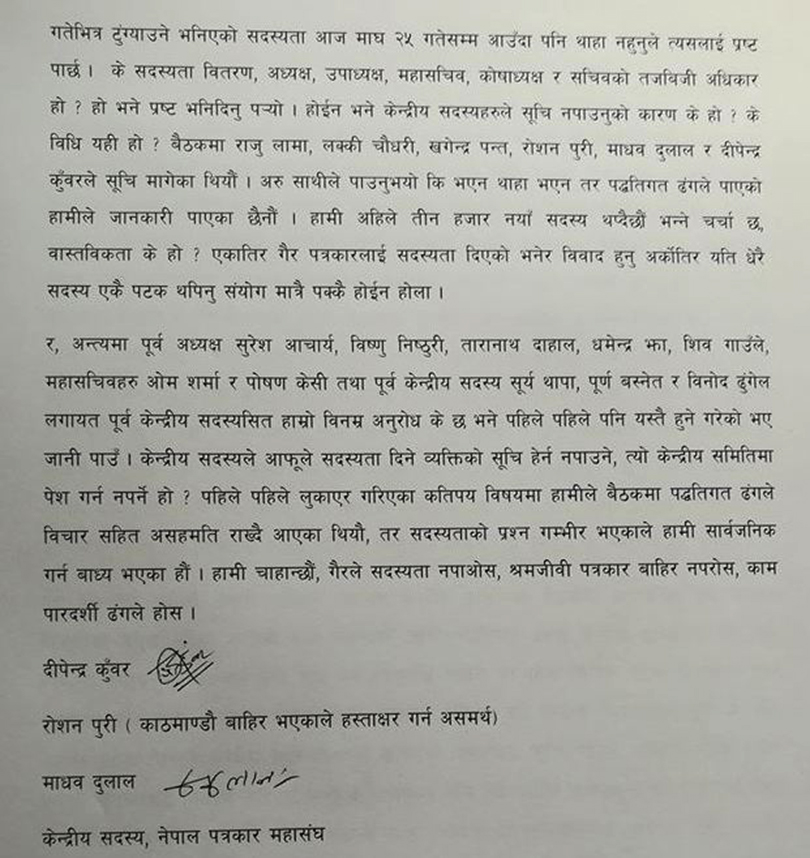 गतेभित्र टुंग्याउने भनिएको सदस्यता आज माघ २५ गतेसम्म आउँदा पनि थाहा नहुनुले त्यसलाई प्रष्ट
पार्छ । के सदस्यता वितरण, अध्यक्ष, उपाध्यक्ष, महासचिव, कोषाध्यक्ष र सचिवको तजविजी अधिकार
हो ? हो भने प्रष्ट भनिदिनु पऱ्यो । होईन भने केन्द्रीय सदस्यहरुले सूचि नपाउनुको कारण के हो ? के
विधि यही हो ? बैठकमा राजु लामा, लक्की चौधरी, खगेन्द्र पन्त, रोशन पुरी, माधव दुलाल र दीपेन्द्र
कुँवरले सूचि मागेका थियौं । अरु साथीले पाउनुभयो कि भएन थाहा भएन तर पद्धतिगत ढंगले पाएको
हामीले जानकारी पाएका छैनौं । हामी अहिले तीन हजार नयाँ सदस्य थप्दैछौं भन्ने चर्चा छ,
वास्तविकता के हो ? एकातिर गैर पत्रकारलाई सदस्यता दिएको भनेर विवाद हुनु अर्कोतिर यति धेरै
सदस्य एकै पटक थपिनु संयोग मात्रै पक्कै होईन होला ।
र, अन्त्यमा पूर्व अध्यक्ष सुरेश आचार्य, विष्णु निष्ठुरी, तारानाथ दाहाल, धमेन्द्र झा, शिव गाउँले,
महासचिवहरु ओम शर्मा र पोषण केसी तथा पूर्व केन्द्रीय सदस्य सूर्य थापा, पूर्ण बस्नेत र विनोद ढुंगेल
लगायत पूर्व केन्द्रीय सदस्यसित हाम्रो विनम्र अनुरोध के छ भने पहिले पहिले पनि यस्तै हुने गरेको भए
जानी पाउँ । केन्द्रीय सदस्यले आफूले सदस्यता दिने व्यक्तिको सूचि हेर्न नपाउने, त्यो केन्द्रीय समितिमा
पेश गर्न नपर्ने हो ? पहिले पहिले लुकाएर गरिएका कतिपय विषयमा हामीले बैठकमा पद्धतिगत ढंगले
विचार सहित असहमति राख्दै आएका थियौ, तर सदस्यताको प्रश्न गम्भीर भएकाले हामी सार्वजनिक
गर्न बाध्य भएका हौं । हामी चाहान्छौं, गैरले सदस्यता नपाओस, श्रमजीवी पत्रकार बाहिर नपरोस, काम
पारदर्शी ढंगले होस ।
दीपेन्द्र कुँवर
रोशन पुरी ( काठमाण्डौ बाहिर भएकाले हस्ताक्षर गर्न असमर्थ)
माधव दुलाल
केन्द्रीय सदस्य, नेपाल पत्रकार महासंघ